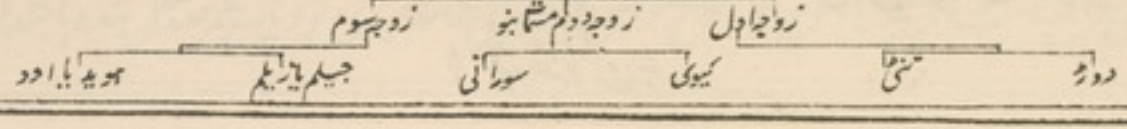 زوجہ اول زوجہ دوم مشتما بنو زوجہ سوم
دورڑ تنی کیوی سورانی جیلم یا زیلم ہوید یا اود